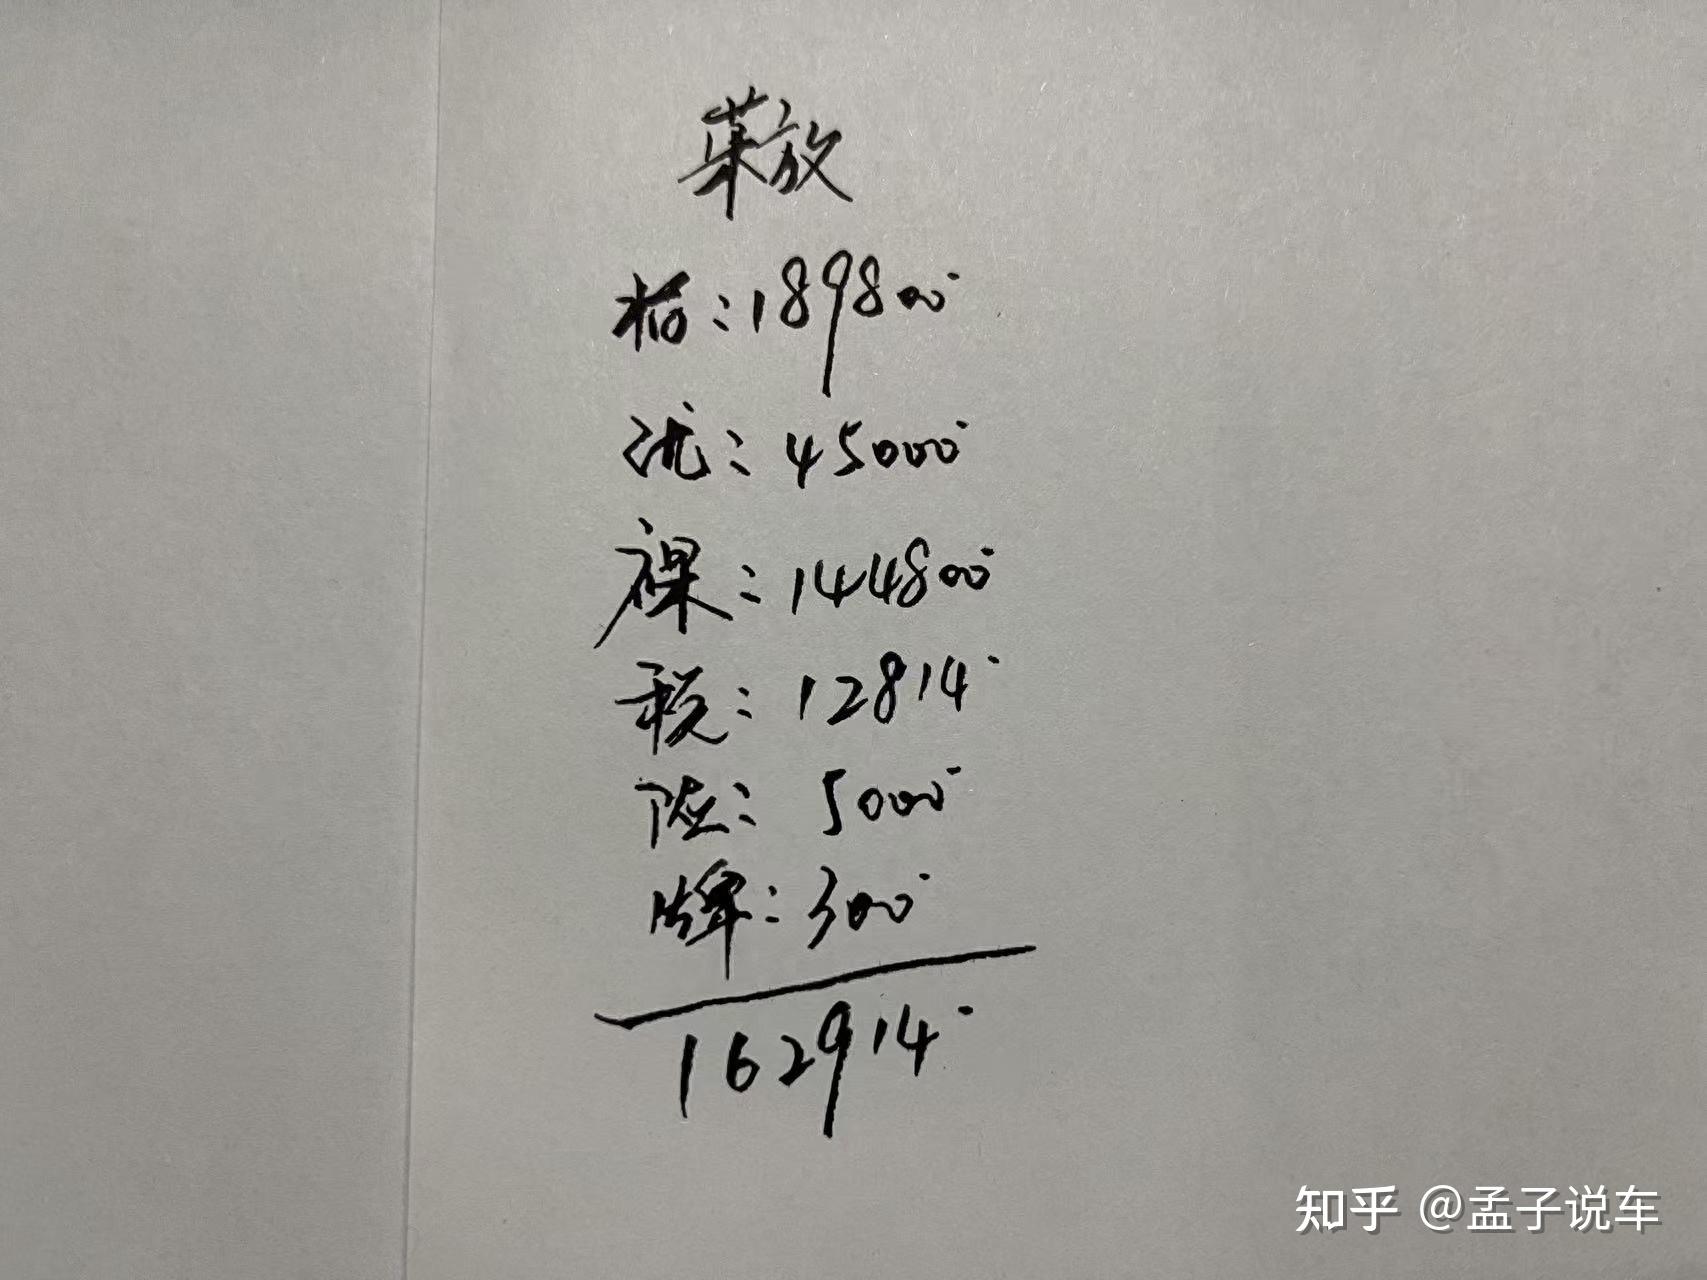 菓放
指：189800
优：45000
裸：144800
税：12814
险：5000
牌：300
162914
知乎 @孟子说车